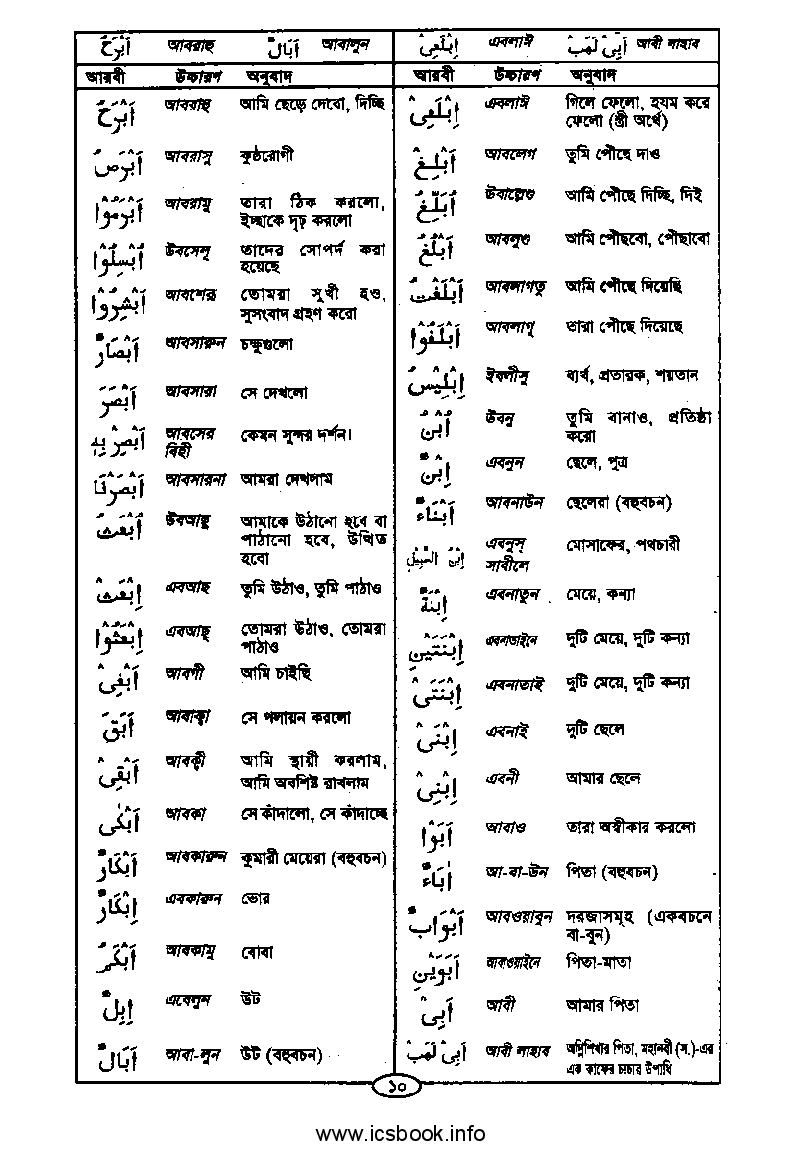 اَبْرَحُ আবরাহু اٰبَالٌ আবালুন
আরবী উচ্চারণ অনুবাদ
اَبْرَحُ আবরাহু আমি ছেড়ে দেবো, দিচ্ছি
اَبْرَصُ আবরাসু কুষ্ঠরোগী
اَبْرَمُوْا আবরামু তারা ঠিক করলো,
ইচ্ছাকে দৃঢ় করলো
اُبْسِلُوْا উবসেলু তাদের সোপর্দ করা
হয়েছে
اَبْشِرُوْا আবশেরু তোমরা সুখী হও,
সুসংবাদ গ্রহণ করো
اَبْصَارٌ আবসারুন চক্ষুগুলো
اَبْصَرَ আবসারা সে দেখলো
اَبْصِرْ بِهٖ আবসের কেমন সুন্দর দর্শন।
বিহী
اَبْصَرْنَا আবসারনা আমরা দেখলাম
اُبْعَثُ উবআছু আমাকে উঠানো হবে বা
পাঠানো হবে, উত্থিত
হবো
اِبْعَثْ এবআছ তুমি উঠাও, তুমি পাঠাও
اِبْعَثُوْا এবআছু তোমরা উঠাও, তোমরা
পাঠাও
اَبْغِىْ আবগী আমি চাইছি
اَبَقَ আবাক্বা সে পলায়ন করলো
اَبْقِىْ আবক্বী আমি স্থায়ী করলাম,
আমি অবশিষ্ট রাখলাম
اَبْكٰى আবকা সে কাঁদালো, সে কাঁদাচ্ছে
اَبْكَارٌ আবকারুন কুমারী মেয়েরা (বহুবচন)
اِبْكَارٌ এবকারুন ভোর
اَبْكَمُ আবকামু বোবা
اِبِلٌ এবেলুন উট
اٰبَالٌ আবা-লুন উট (বহুবচন)
اِبْلَعِىْ এবলাঈ اَبِىْ لَهَبٍ আবী লাহাব
আরবী উচ্চারণ অনুবাদ
اِبْلَعِىْ এবলাঈ গিলে ফেলো, হযম করে
ফেলো (স্ত্রী অর্থে)
اَبْلِغْ আবলেগ তুমি পৌছে দাও
اُبَلِّغُ উবাল্লেগু আমি পৌছে দিচ্ছি, দিই
اَبْلُغُ আবলুগু আমি পৌছবো, পৌছাবো
اَبْلَغْتُ আবলাগতু আমি পৌছে দিয়েছি
اَبْلَغُوْا আবলাগূ তারা পৌছে দিয়েছে
اِبْلِيْسُ ইবলীসু ব্যর্থ, প্রতারক, শয়তান
اُبْنُ উবনু তুমি বানাও, প্রতিষ্ঠা
করো
اِبْنٌ এবনুন ছেলে, পুত্র
اَبْنَاءٌ আবনাউন ছেলেরা (বহুবচন)
اِبْنُ السَّبِيْلِ এবনুস্ মোসাফের, পথচারী
সাবীলে
اِبْنَةٌ এবনাতুন মেয়ে, কন্যা
اِبْنَتَيْنِ এবনাতাইনে দুটি মেয়ে, দুটি কন্যা
اِبْنَتَىْ এবনাতাই দুটি মেয়ে, দুটি কন্যা
اِبْنَىْ এবনাই দুটি ছেলে
اِبْنِىْ এবনী আমার ছেলে
اَبَوْا আবাও তারা অস্বীকার করলো
اٰبَاءٌ আ-বা-উন পিতা (বহুবচন)
اَبْوَابٌ আবওয়াবুন দরজাসমূহ (একবচনে
বা-বুন)
اَبَوَيْنِ আবওয়াইনে পিতা-মাতা
اَبِىْ আবী আমার পিতা
اَبِىْ لَهَبٍ আবী লাহাব অগ্নিশিখার পিতা, মহানবী (স.)-এর
এক কাফের চাচার উপাধি
১০
www.icsbook.info